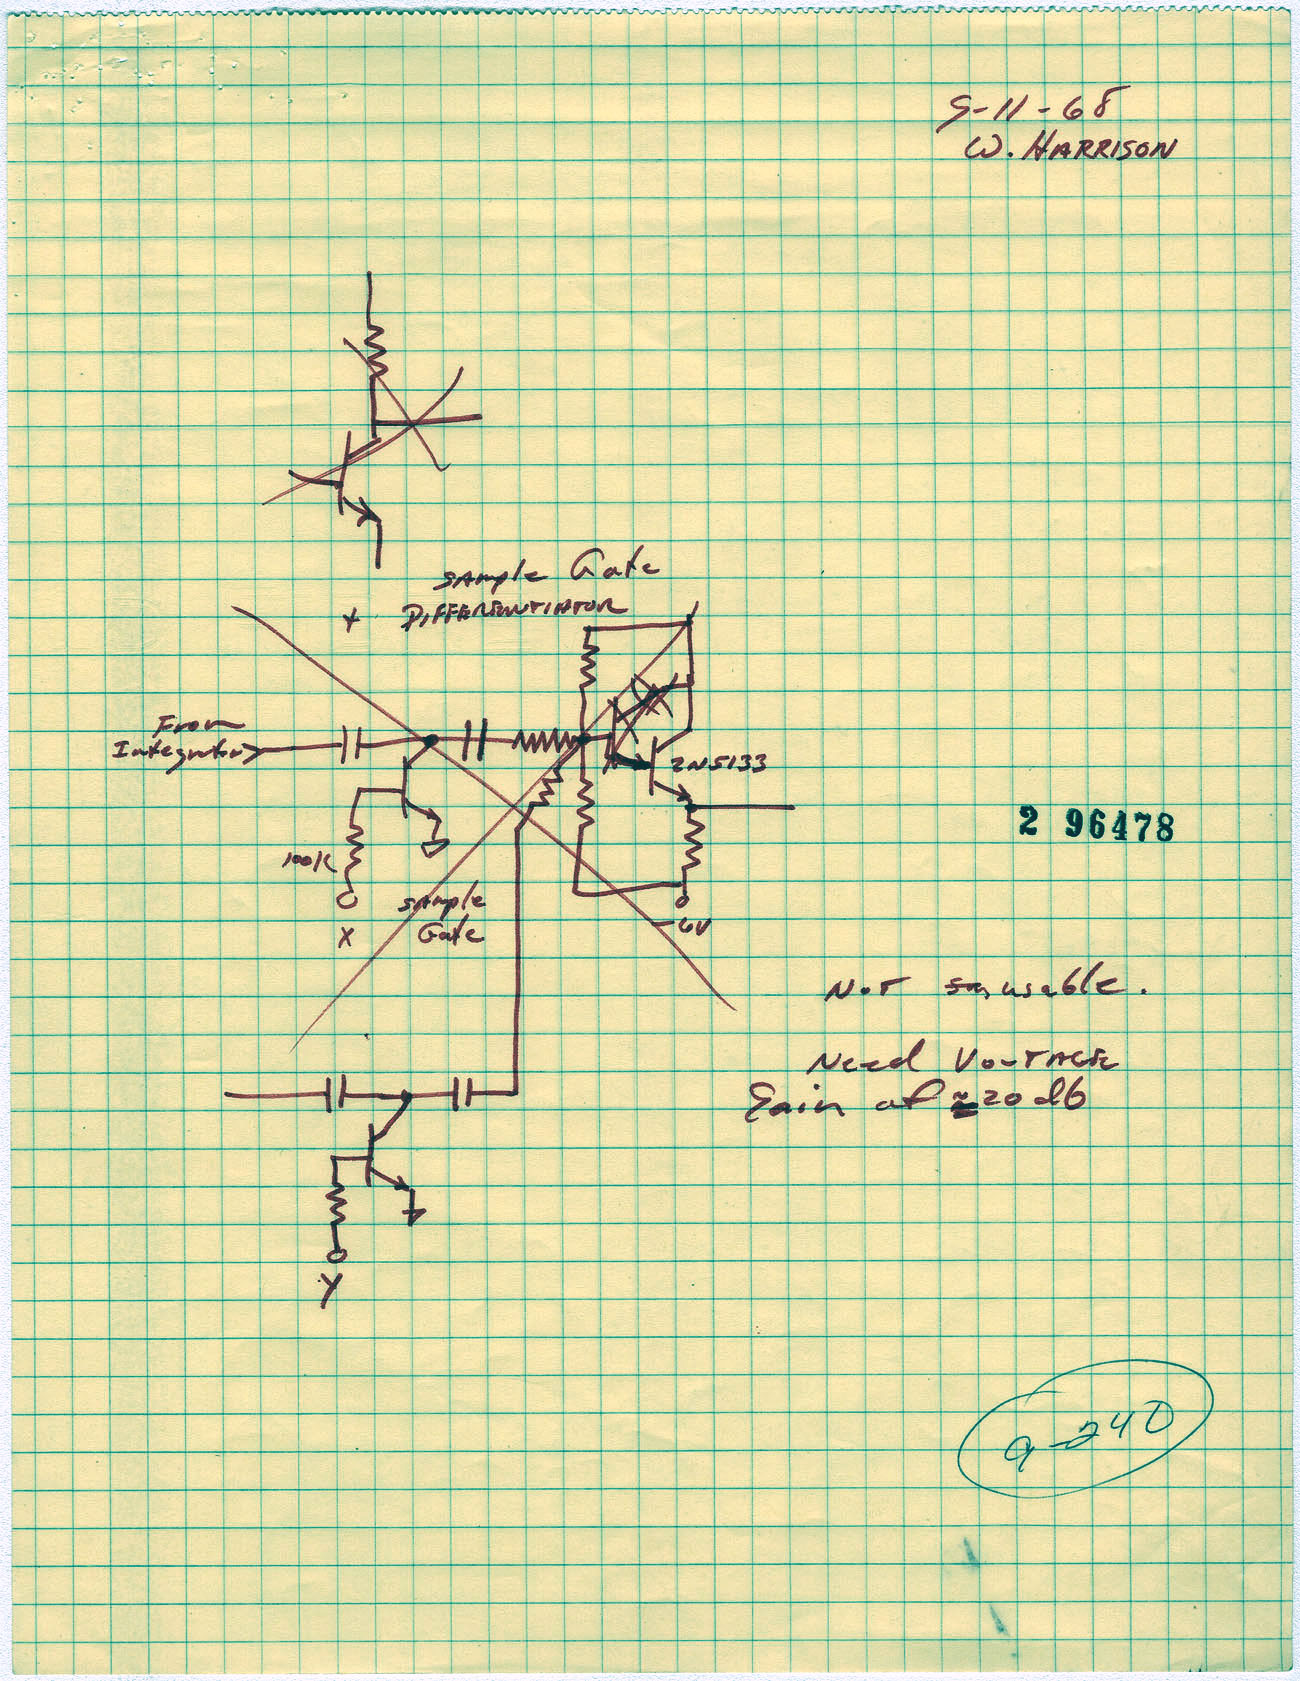 9-11-68
W. HARRISON
Sample Gate
X DIFFERENTIATOR
From
Integrator
2N5133
100K
Sample
Gate
X
-6V
2 96478
Not
Need VOLTAGE
Gain of ≈20 db
Y
9-240